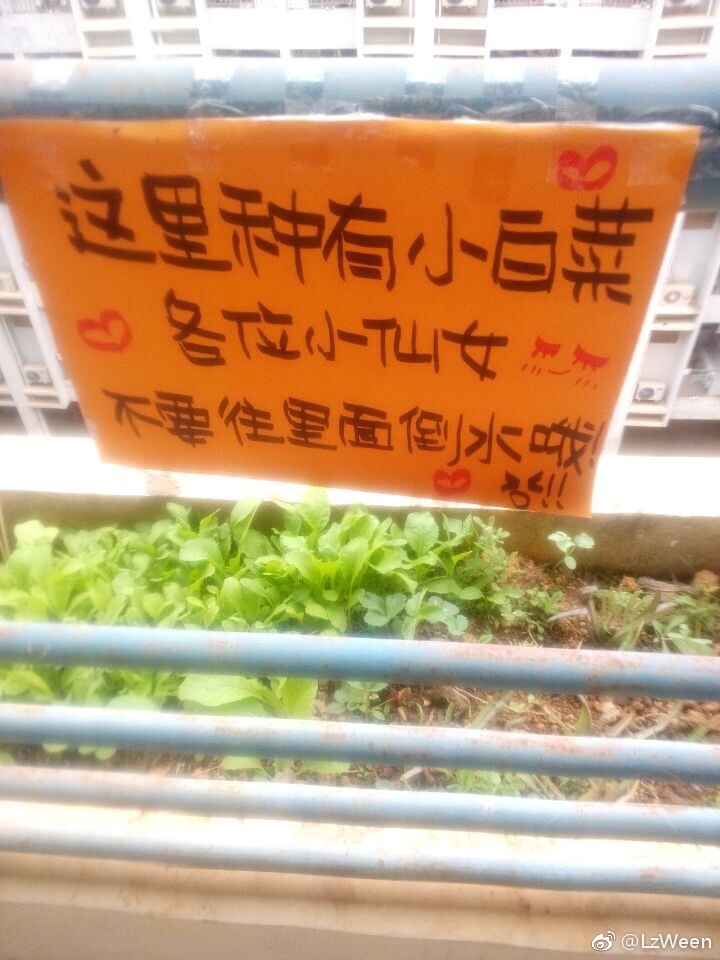 这里种有小白菜
各位小仙女
不要往里面倒水
@LzWeen